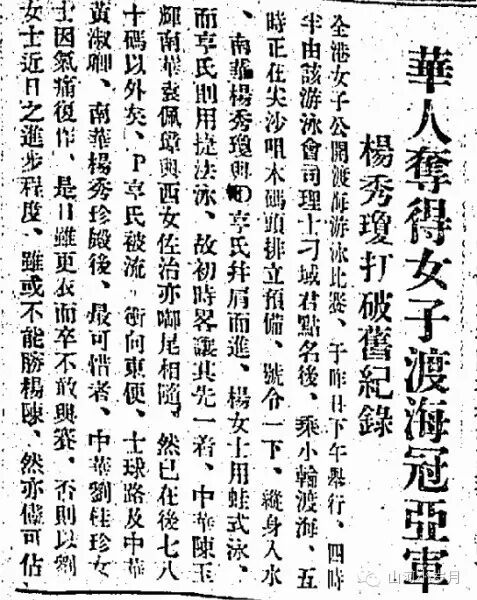 華人奪得女子渡海冠亞軍
楊秀瓊打破舊紀錄
全港女子公開渡海游泳比賽、于昨日下午舉行、四時
半由該游泳會司理士刁域君點名後、乘小輪渡海、五
時正在尖沙咀木碼頭排立預備、號令一下、縱身入水
、南華楊秀瓊與亨氏并肩而進、楊女士用蛙式泳、
而亨氏則用捷法泳、故初時畧讓其先一着、中華陳玉
輝南華袁佩璋與西女佐治亦啣尾相隨、然已在後七八
十碼以外矣、P亨氏被流 衝向東便、士球路及中華
黃淑卿、南華楊秀珍殿後、最可惜者、中華劉桂珍女
士因氣痛復作、是日雖更衣而卒不敢與賽、否則以劉
女士近日之進步程度、雖或不能勝楊陳、然亦儘可佔